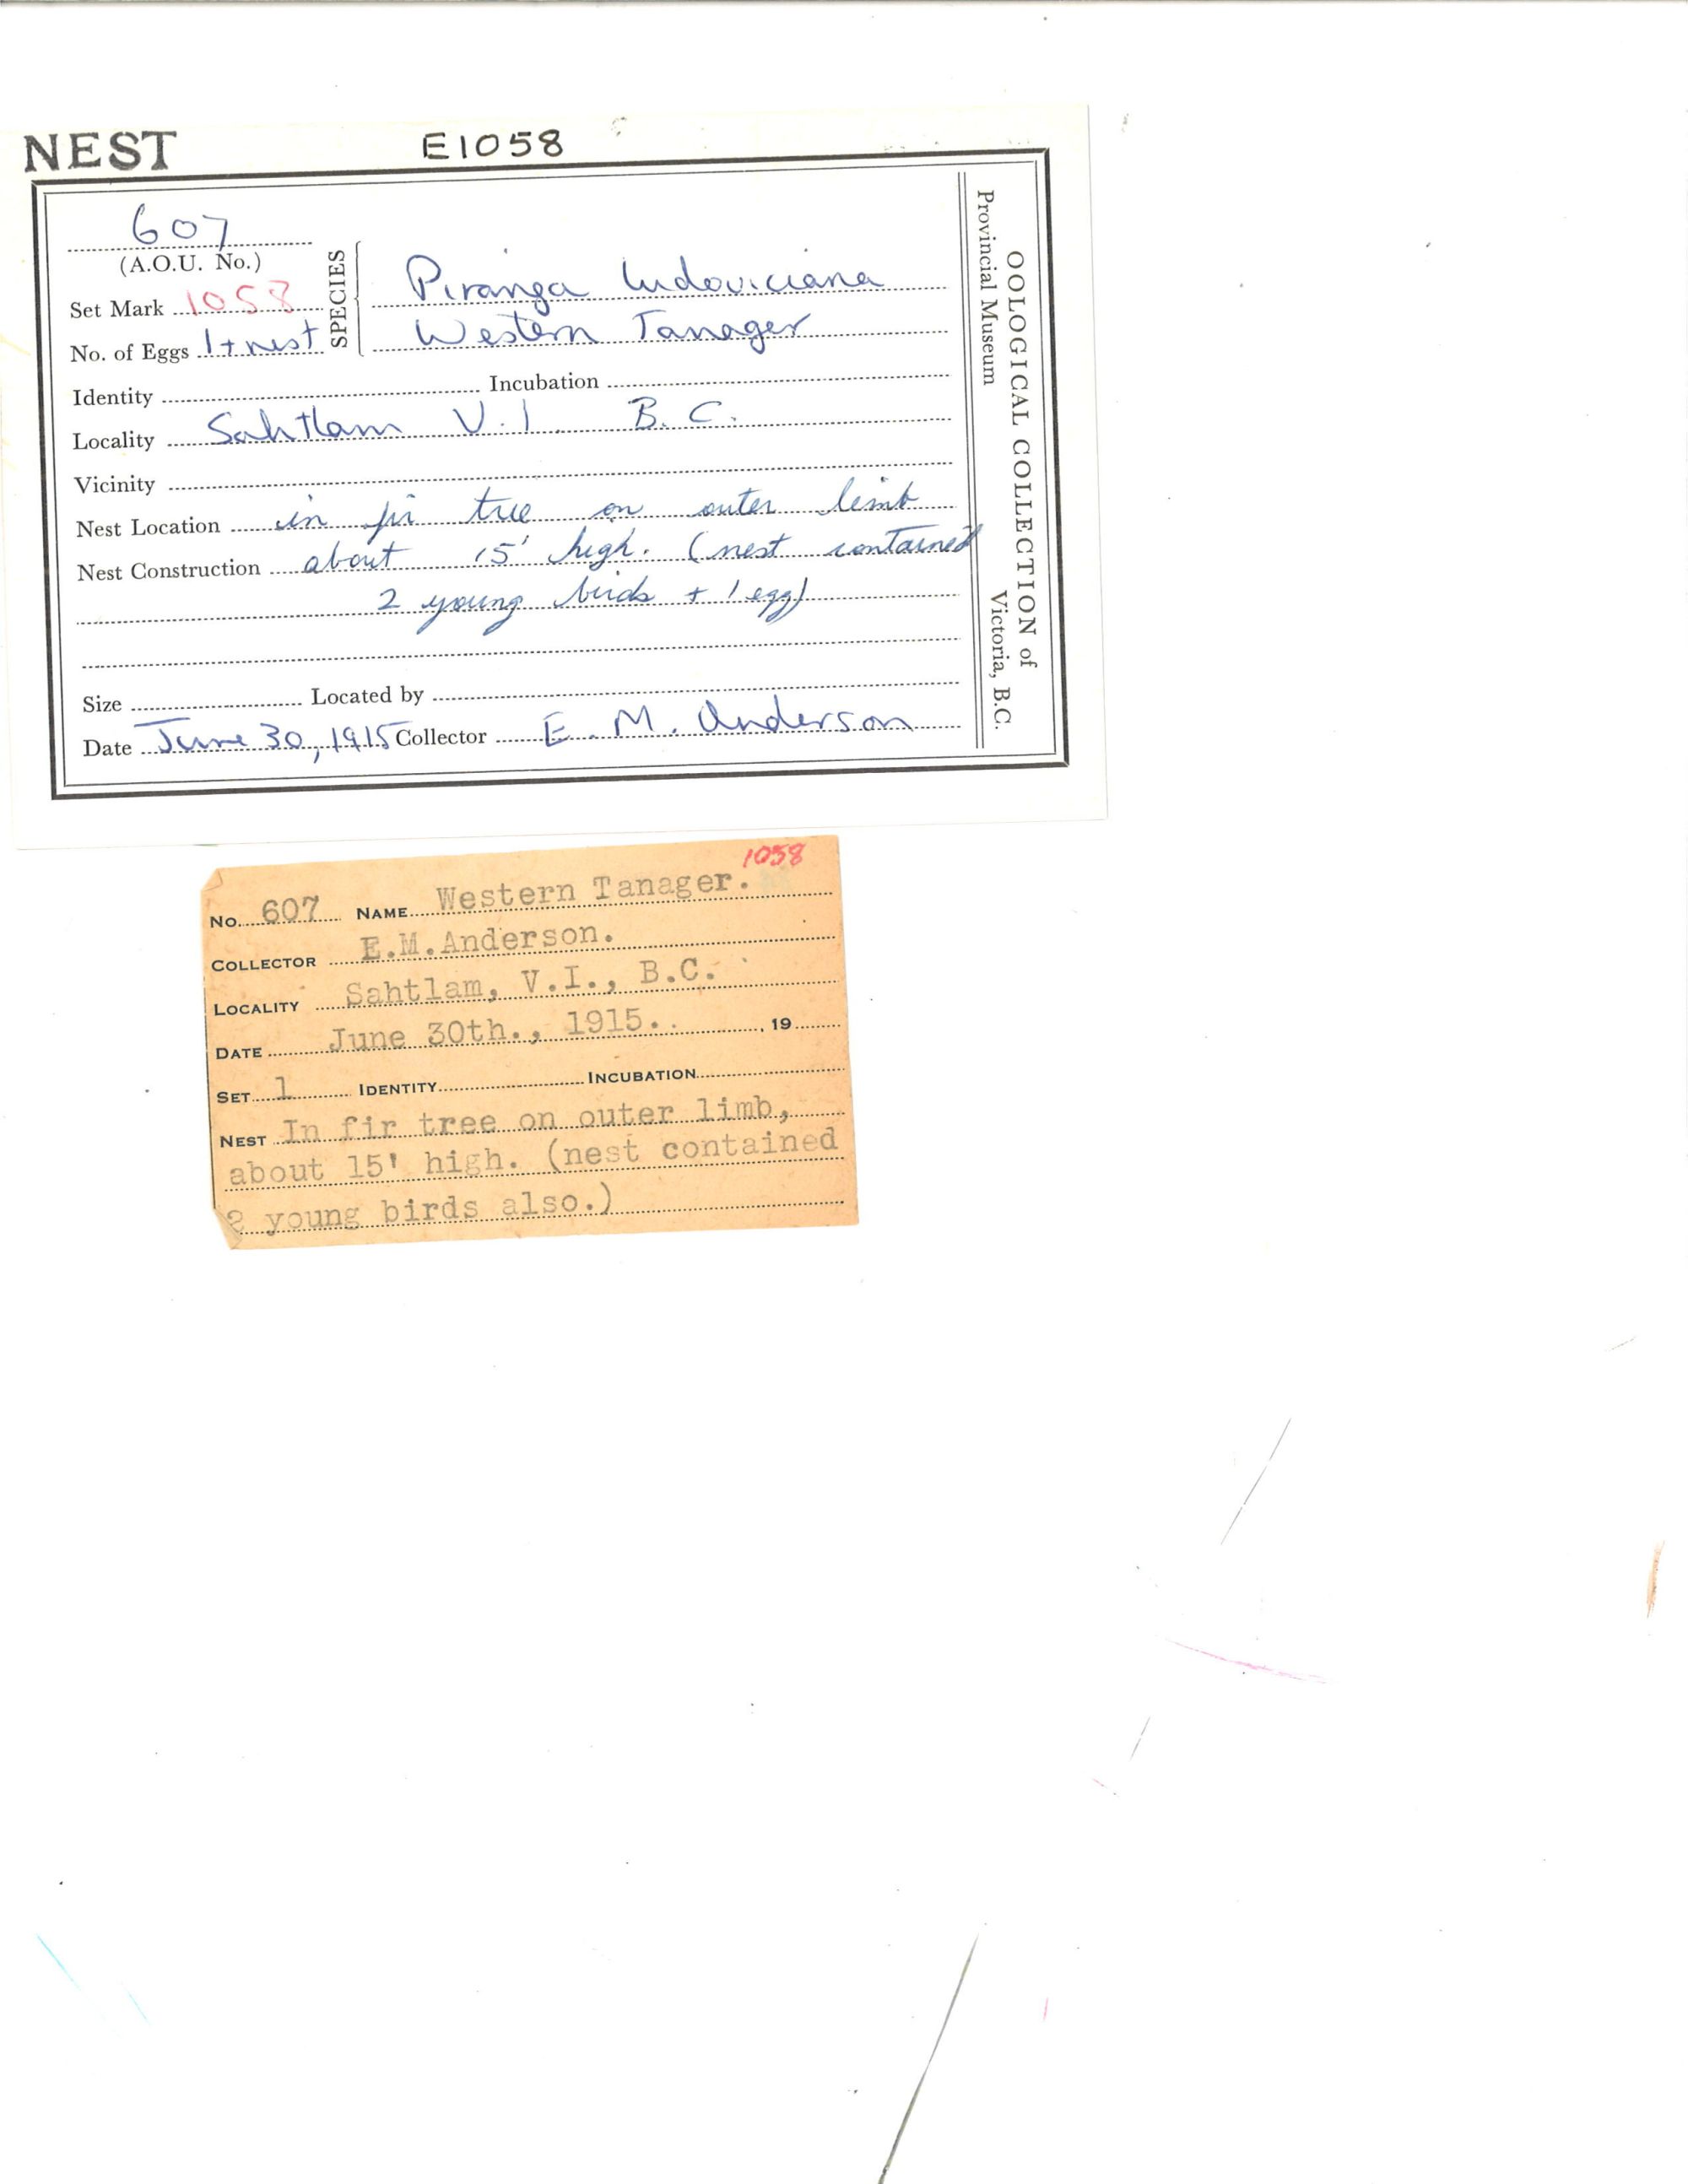 NEST E1058
607
(A.O.U. No.)
SPECIES
Piranga ludoviciana
Western Tanager
Set Mark 1058
No. of Eggs 1+nest
Identity Incubation
Locality Sahtlam V.I. B.C.
Vicinity
Nest Location in fir tree on outer limb
Nest Construction about 15' high. (nest contained
2 young birds + 1 egg)
Size Located by
Date June 30, 1915 Collector E. M. Anderson
OOLOGICAL COLLECTION of
Provincial Museum Victoria, B.C.
1058
No. 607 NAME Western Tanager.
COLLECTOR E.M.Anderson.
LOCALITY Sahtlam, V.I., B.C.
DATE June 30th., 1915. , 19
SET 1 IDENTITY INCUBATION
NEST In fir tree on outer limb,
about 15' high. (nest contained
2 young birds also.)